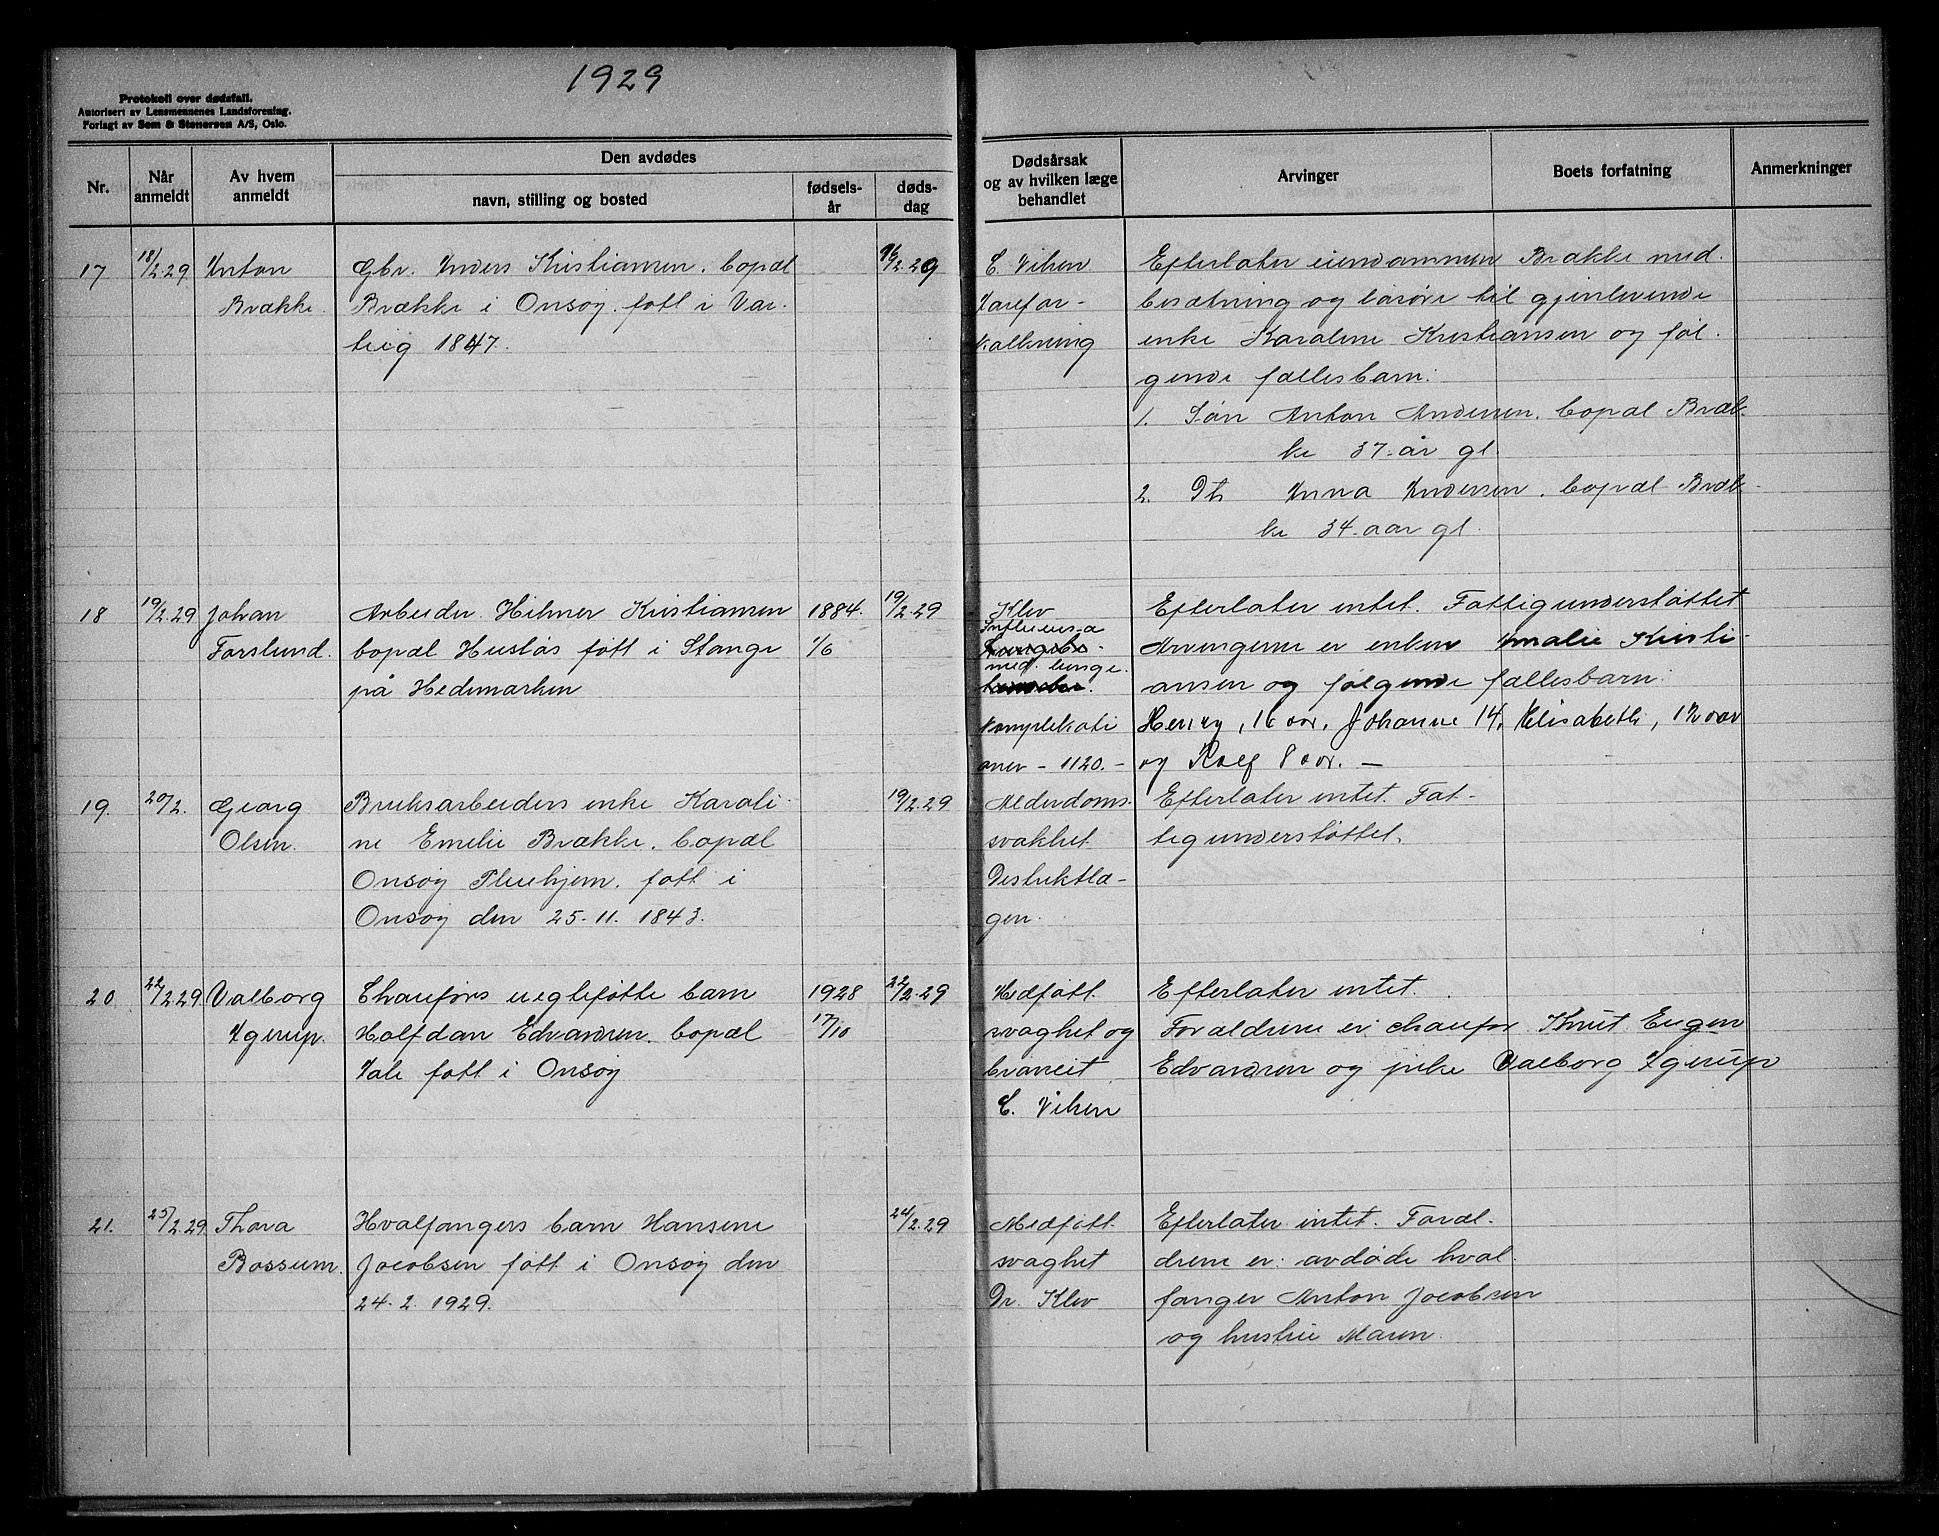 1929
Protokoll over dødsfall.
Autorisert av Lensmennenes Landsforening.
Forlagt av Sem & Stenersen A/S, Oslo.
Nr.
Når anmeldt
Av hvem anmeldt
Den avdødes
navn, stilling og bosted
fødsels-
år
døds-
dag
Dødsårsak
og av hvilken læge
behandlet
Arvinger
Boets forfatning
Anmerkninger
17
18/2.29
Anton
Brække.
Gbr. Anders Kristiansen, bopæl
Brække i Onsøy, født i Var-
teig 1847.
16/2.29
C. Viken
Åreforkalkning
Efterlater eiendommen Brække med
besætning og løsøre til gjenlevende
enke Karoline Kristiansen og føl-
gende fællesbarn:
1. Søn Anton Andersen, bopæl Bræk-
ke 37 år gl.
2. Dt. Anna Andersen, bopæl Bræk-
ke 34 aar gl.
18
19/2.29
Johan
Forslund.
Arbeider Hilmer Kristiansen
bopæl Husløs født i Stange
på Hedemarken
1884.
1/6
19/2.29
Klev
Influensa
med lunge-
komplikati
oner - 1120. -
Efterlater intet. Fattigunderstøttet
Arvingerne er enken Amalie Kristi-
ansen og følgende fællesbarn:
Henry, 16 aar, Johanne 14, Elisabeth, 12 aar
og Rolf 8 aar. -
19.
20/2.
Georg
Olsen.
Bruksarbeiders enke Karoli-
ne Emelie Brække, bopæl
Onsøy Pleiehjem, født i
Onsøy den 25-11. 1843.
19/2.29
Alderdoms-
svakhet
Destriktlæ-
gen.
Efterlater intet. Fat-
tigunderstøttet.
20
22/2.29
Valborg
Agerup.
Chauførs uegtefødte barn
Halfdan Edvardsen, bopæl
Åle født i Onsøy
1928
17/10
22/2.29
Medfødt
svaghet og
bronkit
C. Viken
Efterlater intet.
Forældrene er: chaufør Knut Eugen
Edvardsen og pike Valborg Agerup
21.
25/2.29
Thora
Bossum.
Hvalfangers barn Hansine
Jacobsen født i Onsøy den
24-2. 1929.
24/2.29
Medfødt
svaghet
Dr. Klev
Efterlater intet. Foræl-
drene er: avdøde hval-
fanger Anton Jacobsen
og hustru Maren.